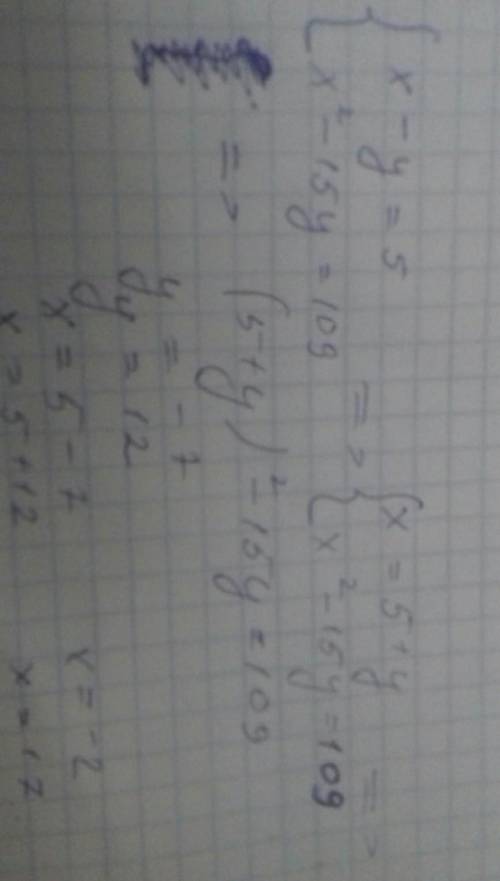 { x - y = 5
{ x² - 15y = 109 => { x = 5 + y
{ x² - 15y = 109 =>
=> (5 + y)² - 15y = 109
y = -7
y = 12
x = 5 - 7 x = -2
x = 5 + 12 x = 17